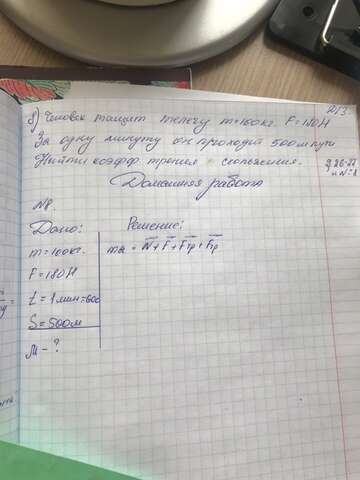 8) Человек тащит телегу m=100кг. F=180Н
За одну минуту он проходит 500м пути
Найти коэфф трения скольжения.
Домашняя работа
N8.
Дано:
m=100кг.
F=180Н
t=1мин=60с
S=500м
μ-?
Решение:
ma = N+F+Fтр+Fтр